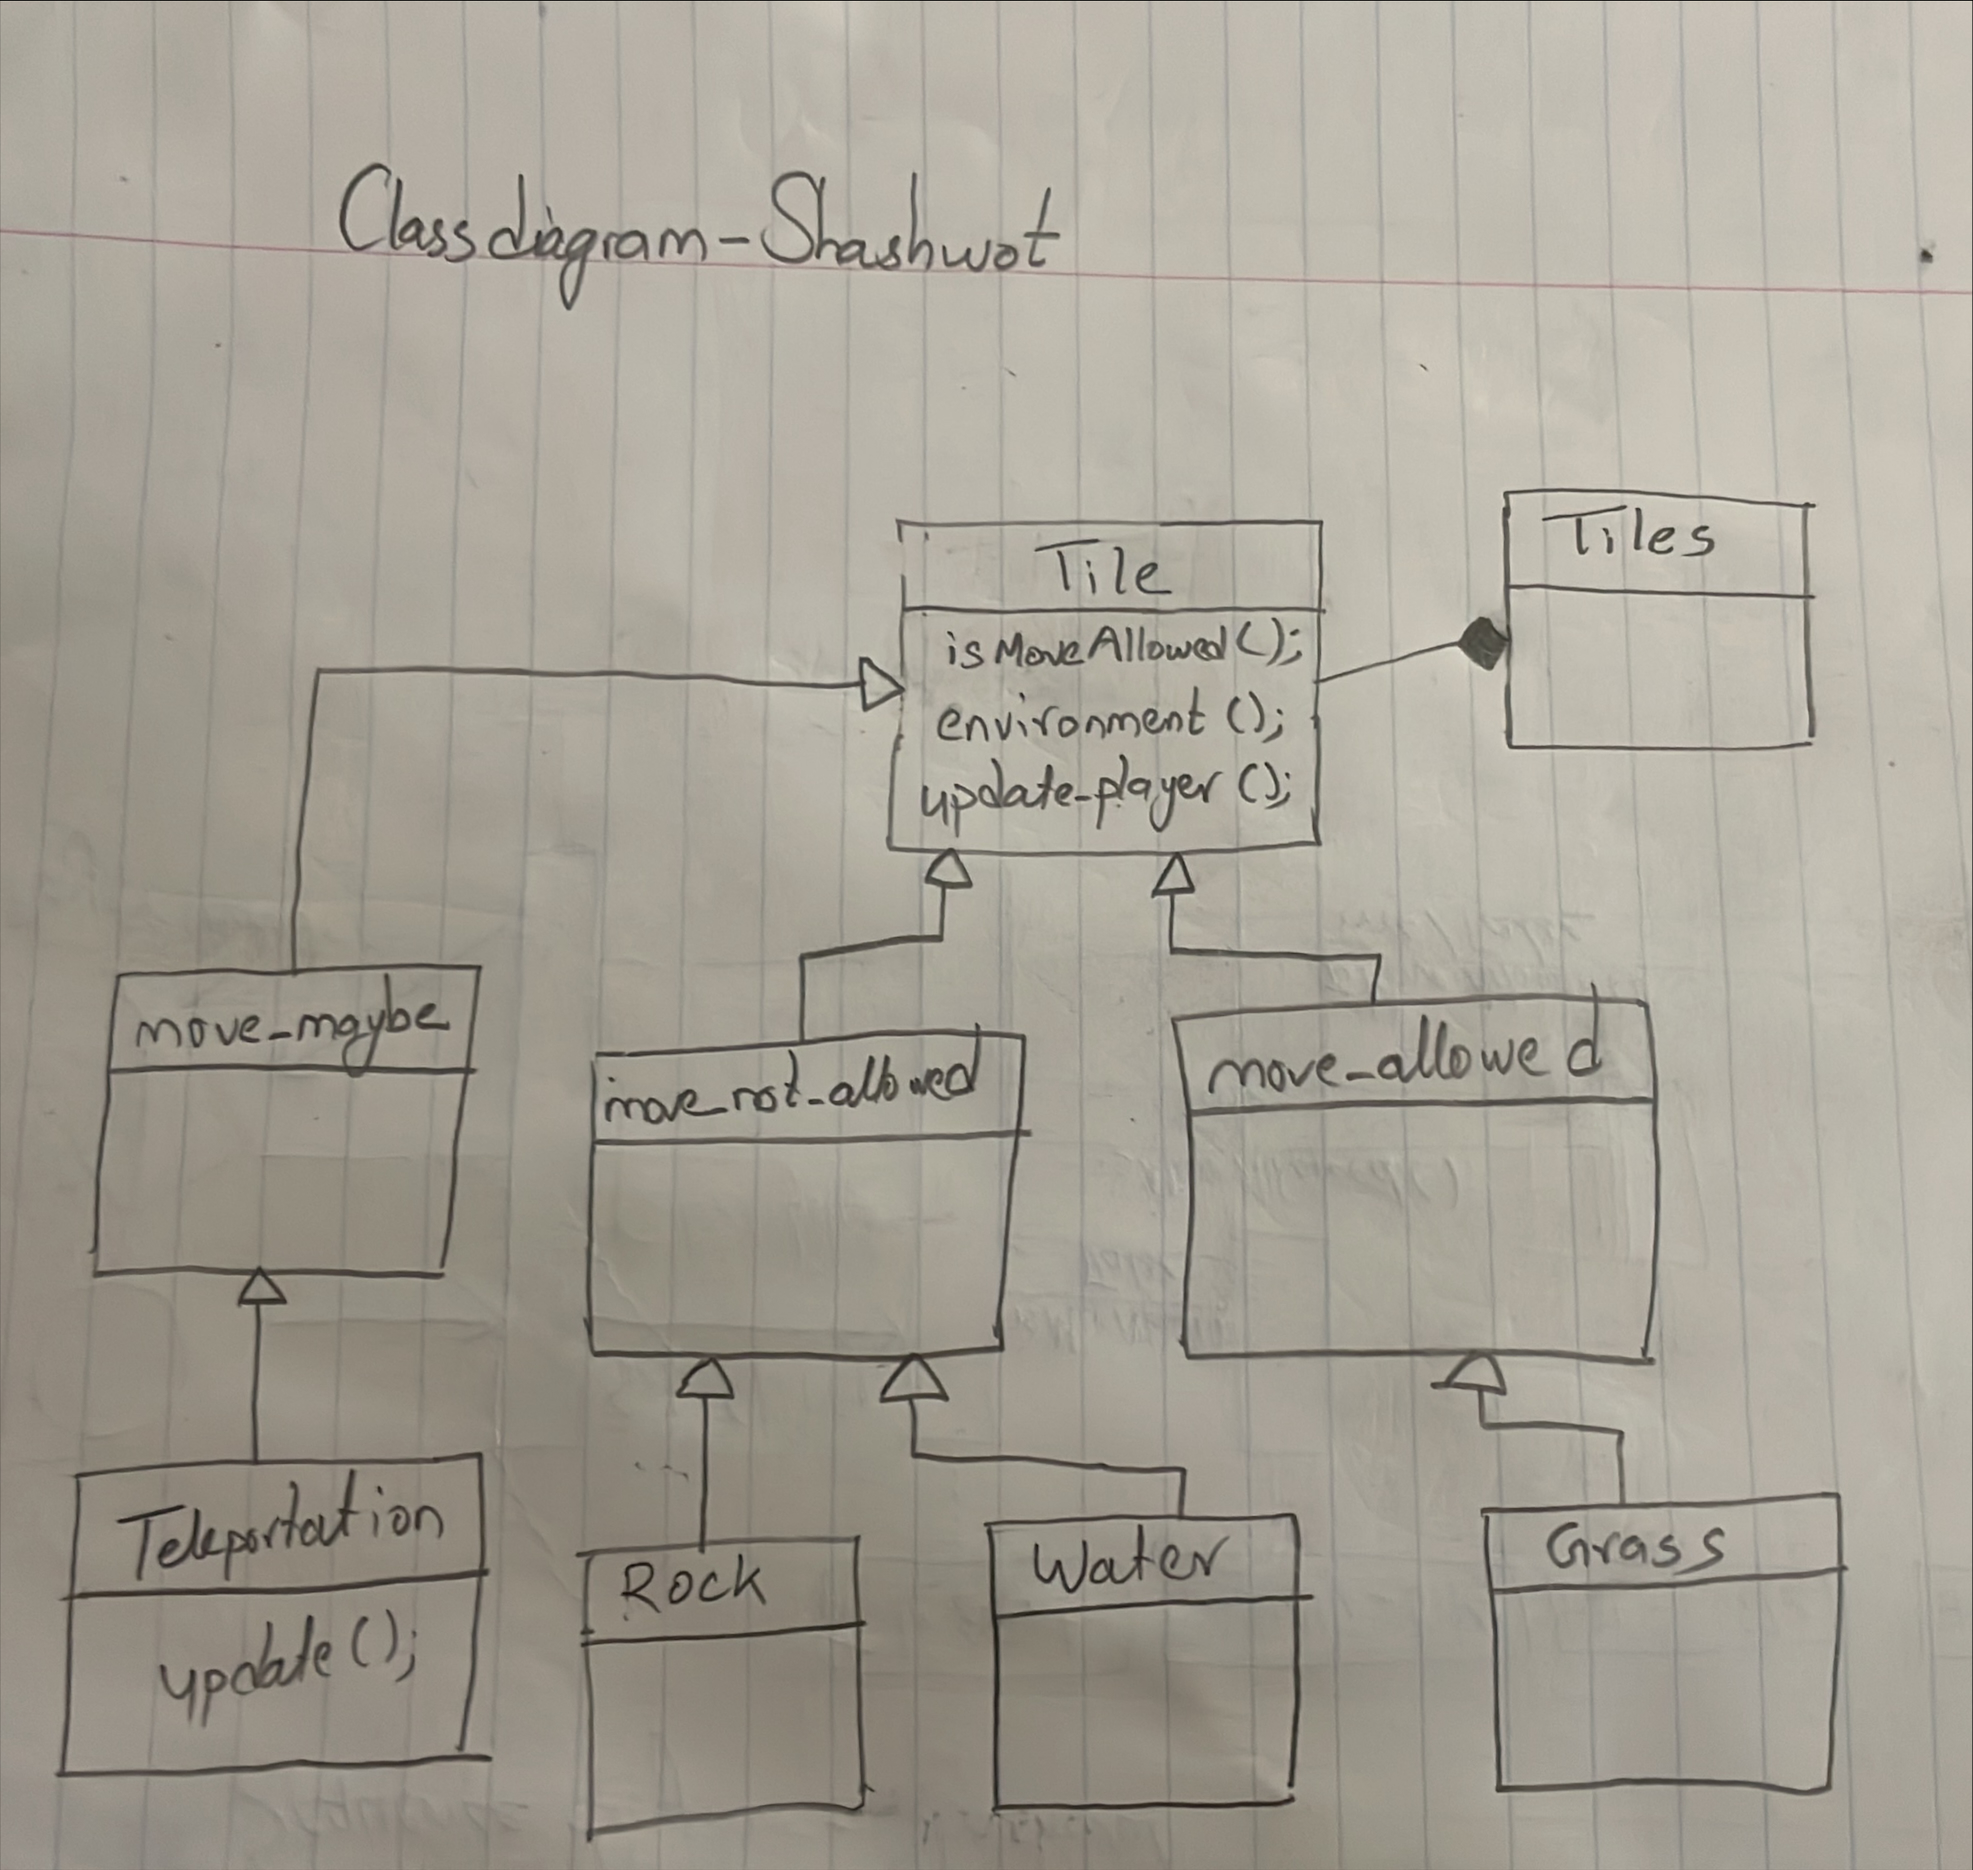 Class diagram - Shashwot
Tiles
Tile
isMoveAllowed();
environment();
update_player();
move_maybe
move_not_allowed
move_allowed
Teleportation
update();
Rock
Water
Grass